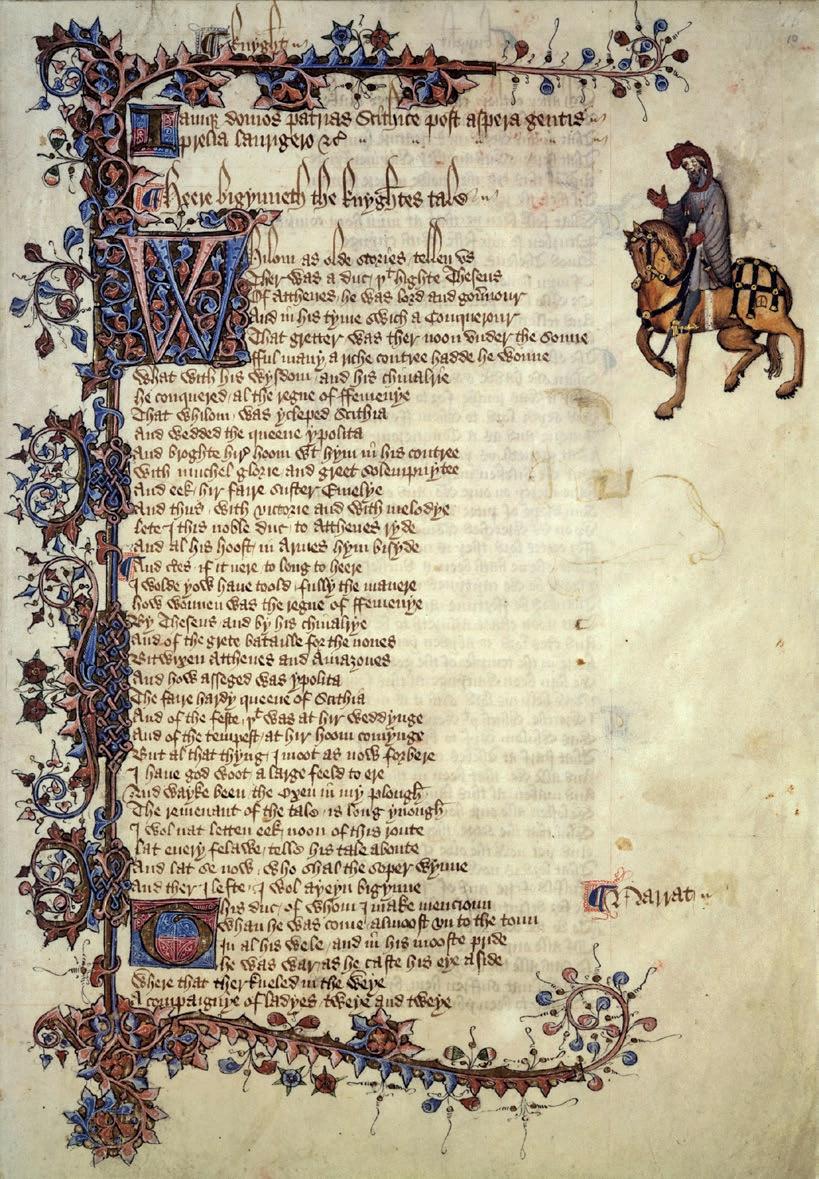 Knyght
Iamq; domos patrias Scithice post aspera gentis
prelia laurigero &c
Heere bigynneth the knyghtes tale
Whilom as olde stories tellen vs
Ther was a duc þt highte Theseus
Of Atthenes he was lord and gouernour
And in his tyme swich a Conquerour
That gretter was ther noon vnder the sonne
fful many a riche contree hadde he wonne
What with his wysdom and his chiualrie
he conquered al the regne of ffemenye
That whilom was ycleped Scithia
And wedded the queene ypolita
And broghte hire hoom wt hym in his contree
With muchel glorie and greet solempnytee
And eek hir faire suster Emelye
And thus with victorie and with melodye
lete I this noble duc to Atthenes ryde
And al his hoost in Armes hym bisyde
And certes if it nere to long to heere
I wolde yow haue toold fully the manere
how wonnen was the regne of ffemenye
By Theseus and by his chiualrye
And of the grete bataille for the nones
Bitwixen Atthenes and Amazones
And how asseged was ypolita
The faire hardy queene of Scithia
And of the feste þt was at hir weddynge
And of the tempest at hir hoom comynge
But al that thyng I moot as now forbere
I haue god woot a large feeld to ere
And wayke been the Oxen in my plough
The remenant of the tale is long ynough
I wol nat letten eek noon of this route
lat euery felawe telle his tale aboute
And lat se now who shal the soper wynne
And ther I lefte I wol ayeyn bigynne
Narrat
This duc of whom I make mencioun
Whan he was come almoost vn to the toun
In al his wele and in his mooste pride
he was war as he caste his eye aside
Where that ther kneled in the weye
A compaignye of ladyes tweye and tweye